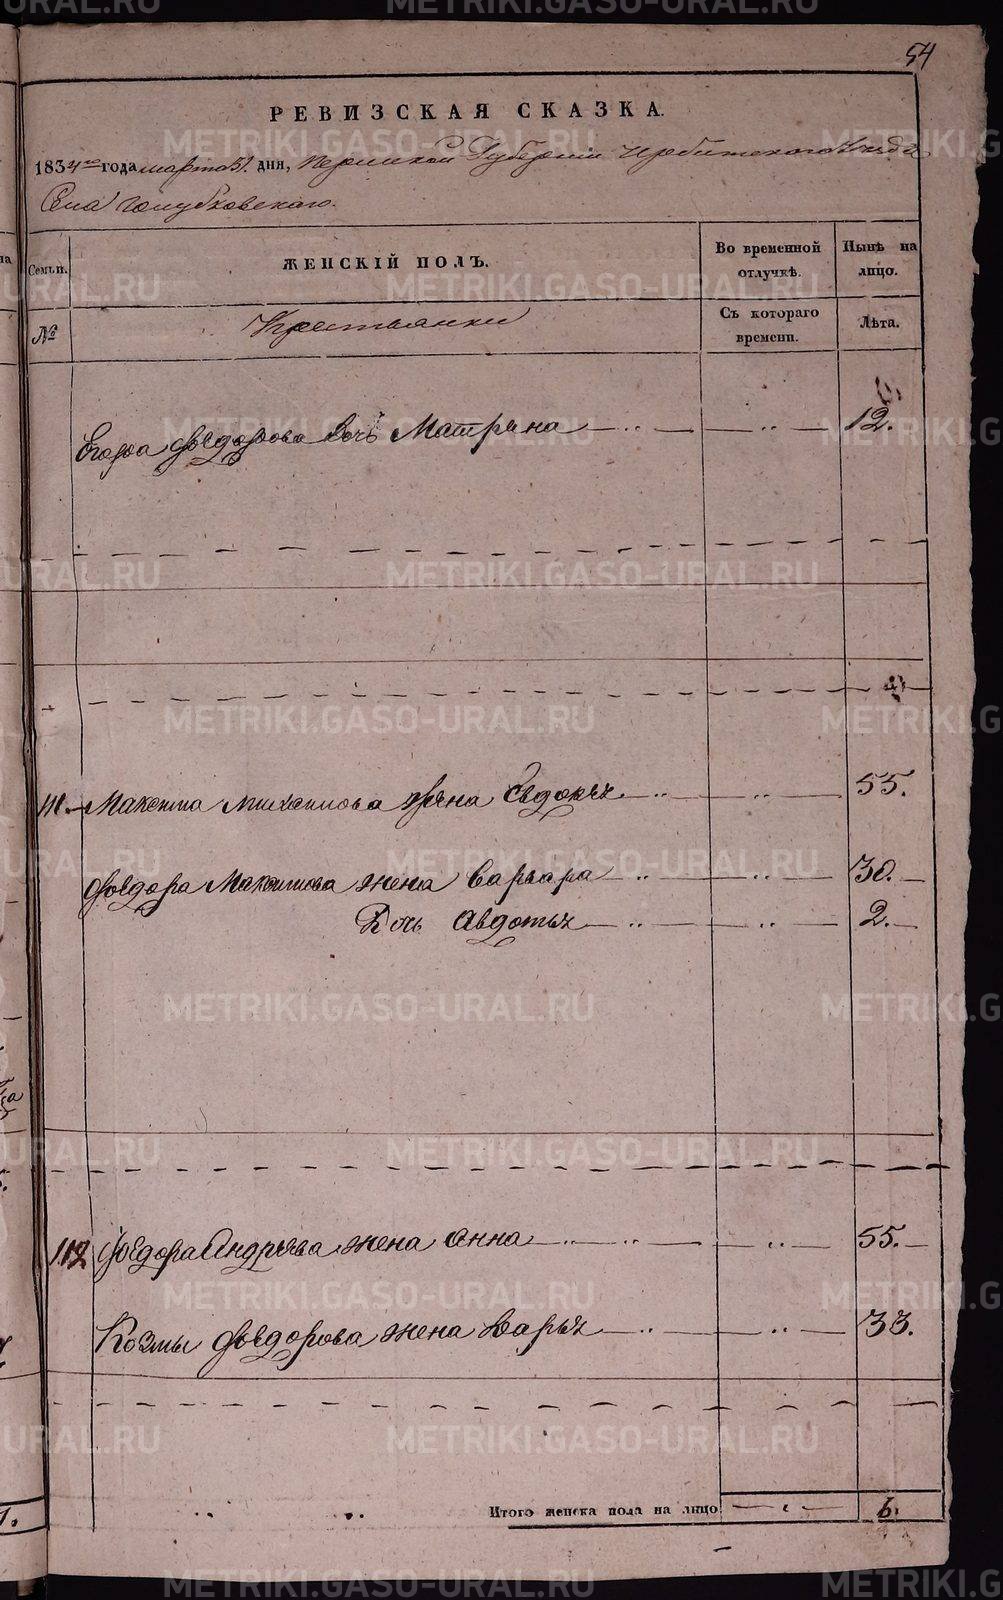 54
РЕВИЗСКАЯ СКАЗКА.
1834го года марта 31 дня, Пермской Губернии Ирбитского Уезда
Села Голубковскаго.
Семьи.
ЖЕНСКІЙ ПОЛЪ.
Во временной отлучкѣ.
Нынѣ на лицо.
№
Крестьянки
Съ котораго времени.
Лѣта.
Егора Ѳедорова дочь Матрена 12.
111. Максима Михаилова жена Евдокья 55.
Федора Максимова жена Варвара 30.
Дочь Авдотья 2.
112 Федора Андрѣева жена Анна 55.
Козмы Федорова жена Дарья 33.
Итого женска пола на лицо 6.
METRIKI.GASO-URAL.RU